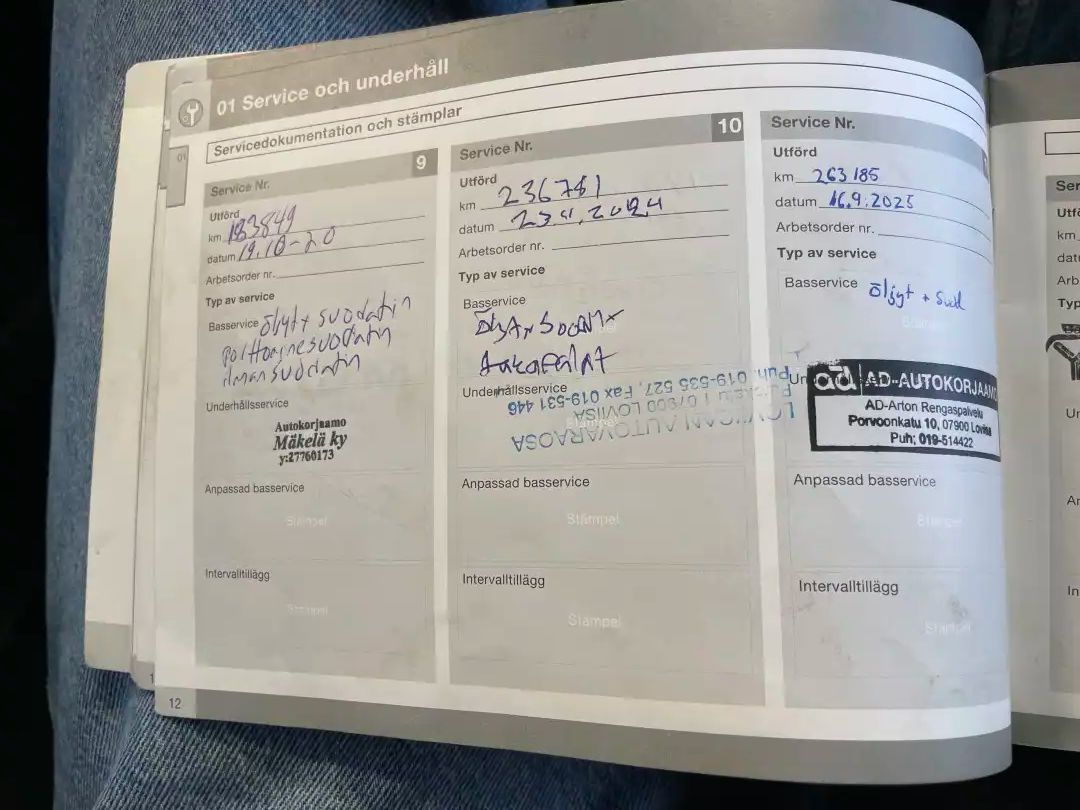 01 Service och underhåll
Servicedokumentation och stämplar
01
Service Nr. 9
Utförd
km 183849
datum 19.10-20
Arbetsorder nr.
Typ av service
Basservice öljyt + suodatin
polttoainesuodatin
ilmansuodatin
Underhållsservice
Autokorjaamo
Mäkelä ky
y:27760173
Anpassad basservice
Stämpel
Intervalltillägg
Stämpel
Service Nr. 10
Utförd
km 236781
datum
Arbetsorder nr.
Typ av service
Basservice
Underhållsservice
Puh. 019-535 527, Fax 019-531 446
1 07900 LOVIISA
LOVIISAN AUTOVARAOSA
Stämpel
Anpassad basservice
Stämpel
Intervalltillägg
Stämpel
Service Nr.
Utförd
km 263185
datum 16.9.2025
Arbetsorder nr.
Typ av service
Basservice öljyt + suod
Stämpel
ad AD-AUTOKORJAAMO
AD-Arton Rengaspalvelu
Porvoonkatu 10, 07900 Loviisa
Puh; 019-514422
Anpassad basservice
Stämpel
Intervalltillägg
Stämpel
12
Ser
Utfö
km
dat
Arb
Typ